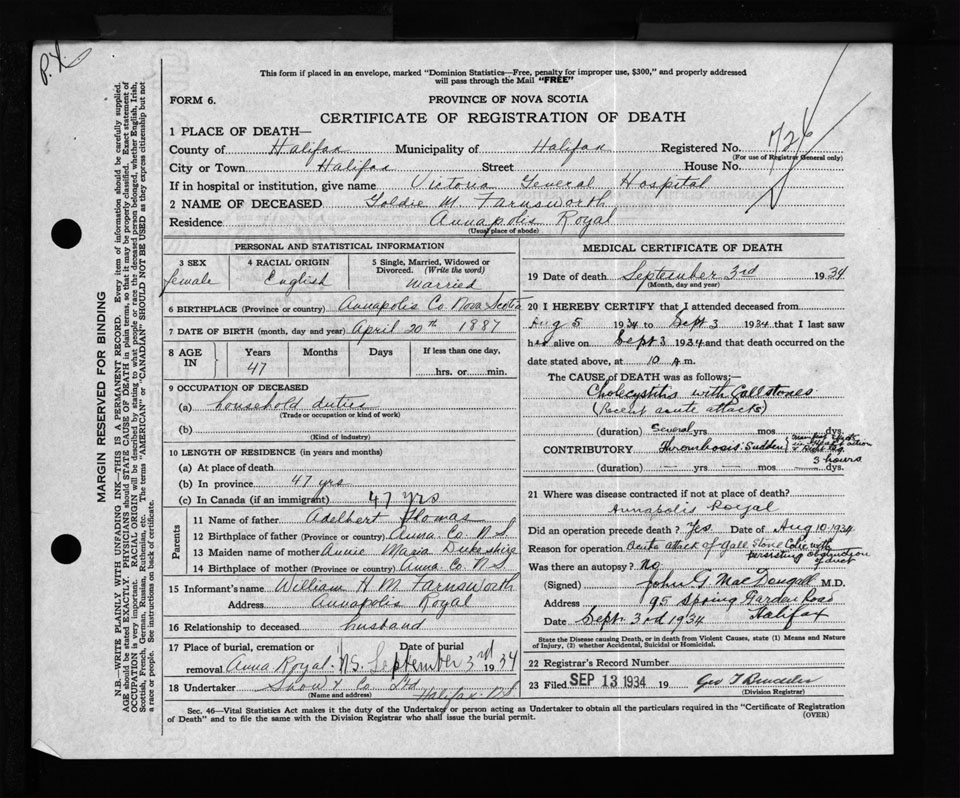 P.X.
This form if placed in an envelope, marked "Dominion Statistics—Free, penalty for improper use, $300," and properly addressed
will pass through the Mail "FREE"
FORM 6.
PROVINCE OF NOVA SCOTIA
CERTIFICATE OF REGISTRATION OF DEATH
1 PLACE OF DEATH—
County of Halifax Municipality of Halifax Registered No. 726
(For use of Registrar General only)
City or Town Halifax Street House No.
If in hospital or institution, give name Victoria General Hospital
2 NAME OF DECEASED Goldie M. Farnsworth
Residence Annapolis Royal
(Usual place of abode)
PERSONAL AND STATISTICAL INFORMATION
3 SEX female
4 RACIAL ORIGIN English
5 Single, Married, Widowed or Divorced. (Write the word) Married
6 BIRTHPLACE (Province or country) Annapolis Co. Nova Scotia
7 DATE OF BIRTH (month, day and year) April 20th 1887
8 AGE IN Years 47 Months Days If less than one day, hrs. or min.
9 OCCUPATION OF DECEASED
(a) household duties
(Trade or occupation or kind of work)
(b)
(Kind of industry)
10 LENGTH OF RESIDENCE (in years and months)
(a) At place of death
(b) In province 47 yrs
(c) In Canada (if an immigrant) 47 yrs
Parents
11 Name of father Adelbert Thomas
12 Birthplace of father (Province or country) Anna. Co. N.S.
13 Maiden name of mother Annie Maria Dukeshire
14 Birthplace of mother (Province or country) Anna. Co. N.S.
15 Informant's name William H. M. Farnsworth
Address Annapolis Royal
16 Relationship to deceased husband
17 Place of burial, cremation or removal Anna Royal. N.S. Date of burial September 3rd 1934
18 Undertaker Snow & Co. Ltd Halifax. N.S.
(Name and address)
MEDICAL CERTIFICATE OF DEATH
19 Date of death September 3rd 1934
(Month, day and year)
20 I HEREBY CERTIFY that I attended deceased from
Aug 5 1934 to Sept 3 1934 that I last saw
her alive on Sept 3 1934 and that death occurred on the
date stated above, at 10 A.m.
The CAUSE of DEATH was as follows;—
Cholecystitis with Gallstones
(Recent acute attacks)
(duration) Several yrs mos dys.
CONTRIBUTORY Thrombosis Sudden
3 hours
(duration) yrs. mos. dys.
21 Where was disease contracted if not at place of death?
Annapolis Royal
Did an operation precede death? Yes Date of Aug 10. 1934
Reason for operation Acute attack of Gall Stone Colic with
persisting obstruction of duct
Was there an autopsy? No
(Signed) John G MacDougall M.D.
Address 95 Spring Garden Road
Halifax
Date Sept. 3rd 1934
State the Disease causing Death, or in death from Violent Causes, state (1) Means and Nature
of Injury, (2) whether Accidental, Suicidal or Homicidal.
22 Registrar's Record Number
23 Filed SEP 13 1934 19
(Division Registrar)
Sec. 46—Vital Statistics Act makes it the duty of the Undertaker or person acting as Undertaker to obtain all the particulars required in the "Certificate of Registration
of Death" and to file the same with the Division Registrar who shall issue the burial permit.
(OVER)
MARGIN RESERVED FOR BINDING
N.B.—WRITE PLAINLY WITH UNFADING INK—THIS IS A PERMANENT RECORD. Every item of information should be carefully supplied.
AGE should be stated EXACTLY. PHYSICIANS should STATE CAUSE OF DEATH in plain terms, so that it may be properly classified. Exact statement of
OCCUPATION is very important. RACIAL ORIGIN will be described by stating to what people or race the deceased person belonged, whether English, Irish,
Scottish, French, German, Russian, Ruthenian, etc. The terms "AMERICAN" or "CANADIAN" SHOULD NOT BE USED as they express citizenship but not
a race or people. See instructions on back of certificate.